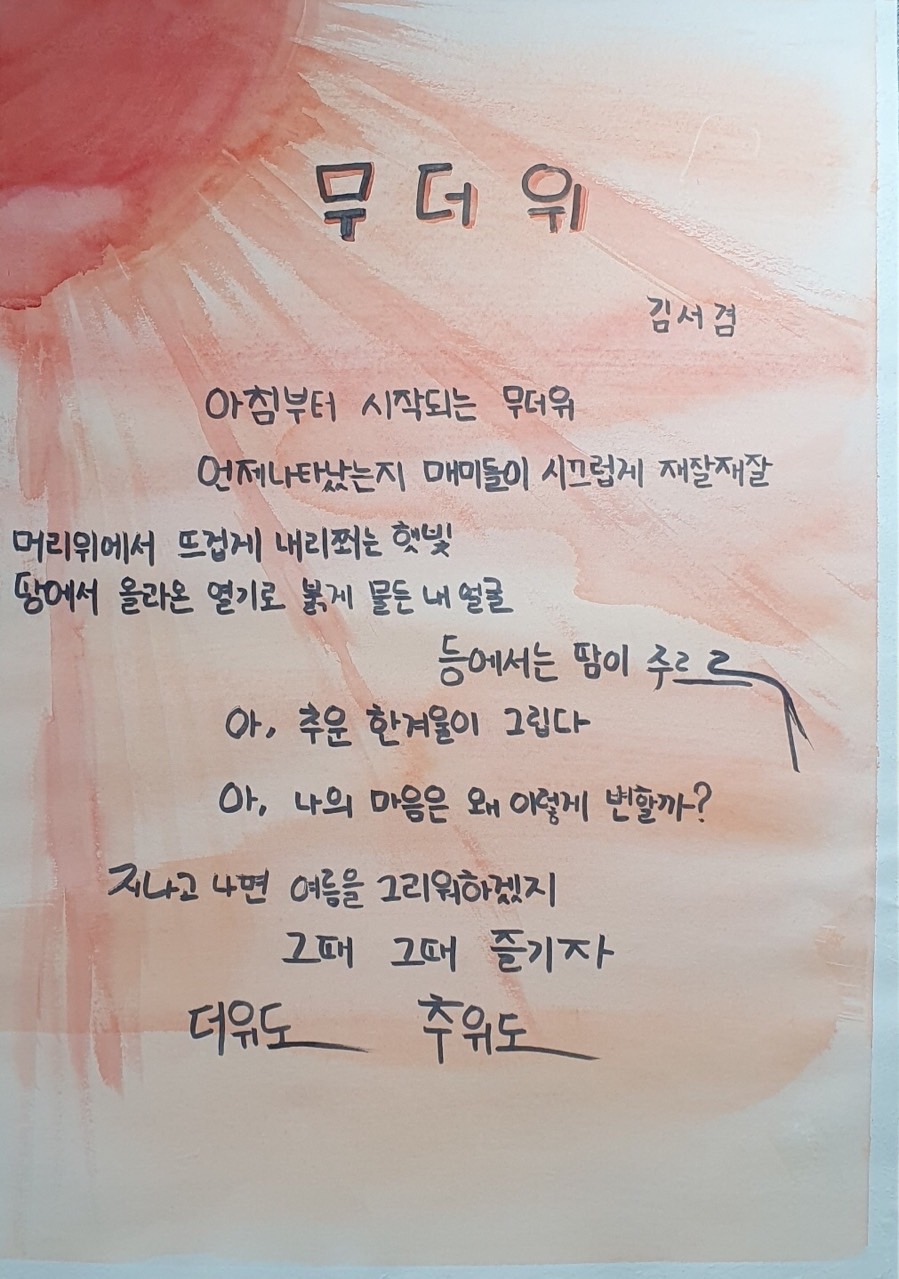 무더위
김서겸
아침부터 시작되는 무더위
언제나타났는지 매미들이 시끄럽게 재잘재잘
머리위에서 뜨겁게 내리쬐는 햇빛
땅에서 올라온 열기로 붉게 물든 내 얼굴
등에서는 땀이 주르르
아, 추운 한겨울이 그립다
아, 나의 마음은 왜 이렇게 변할까?
지나고 나면 여름을 그리워하겠지
그때 그때 즐기자
더위도 추위도